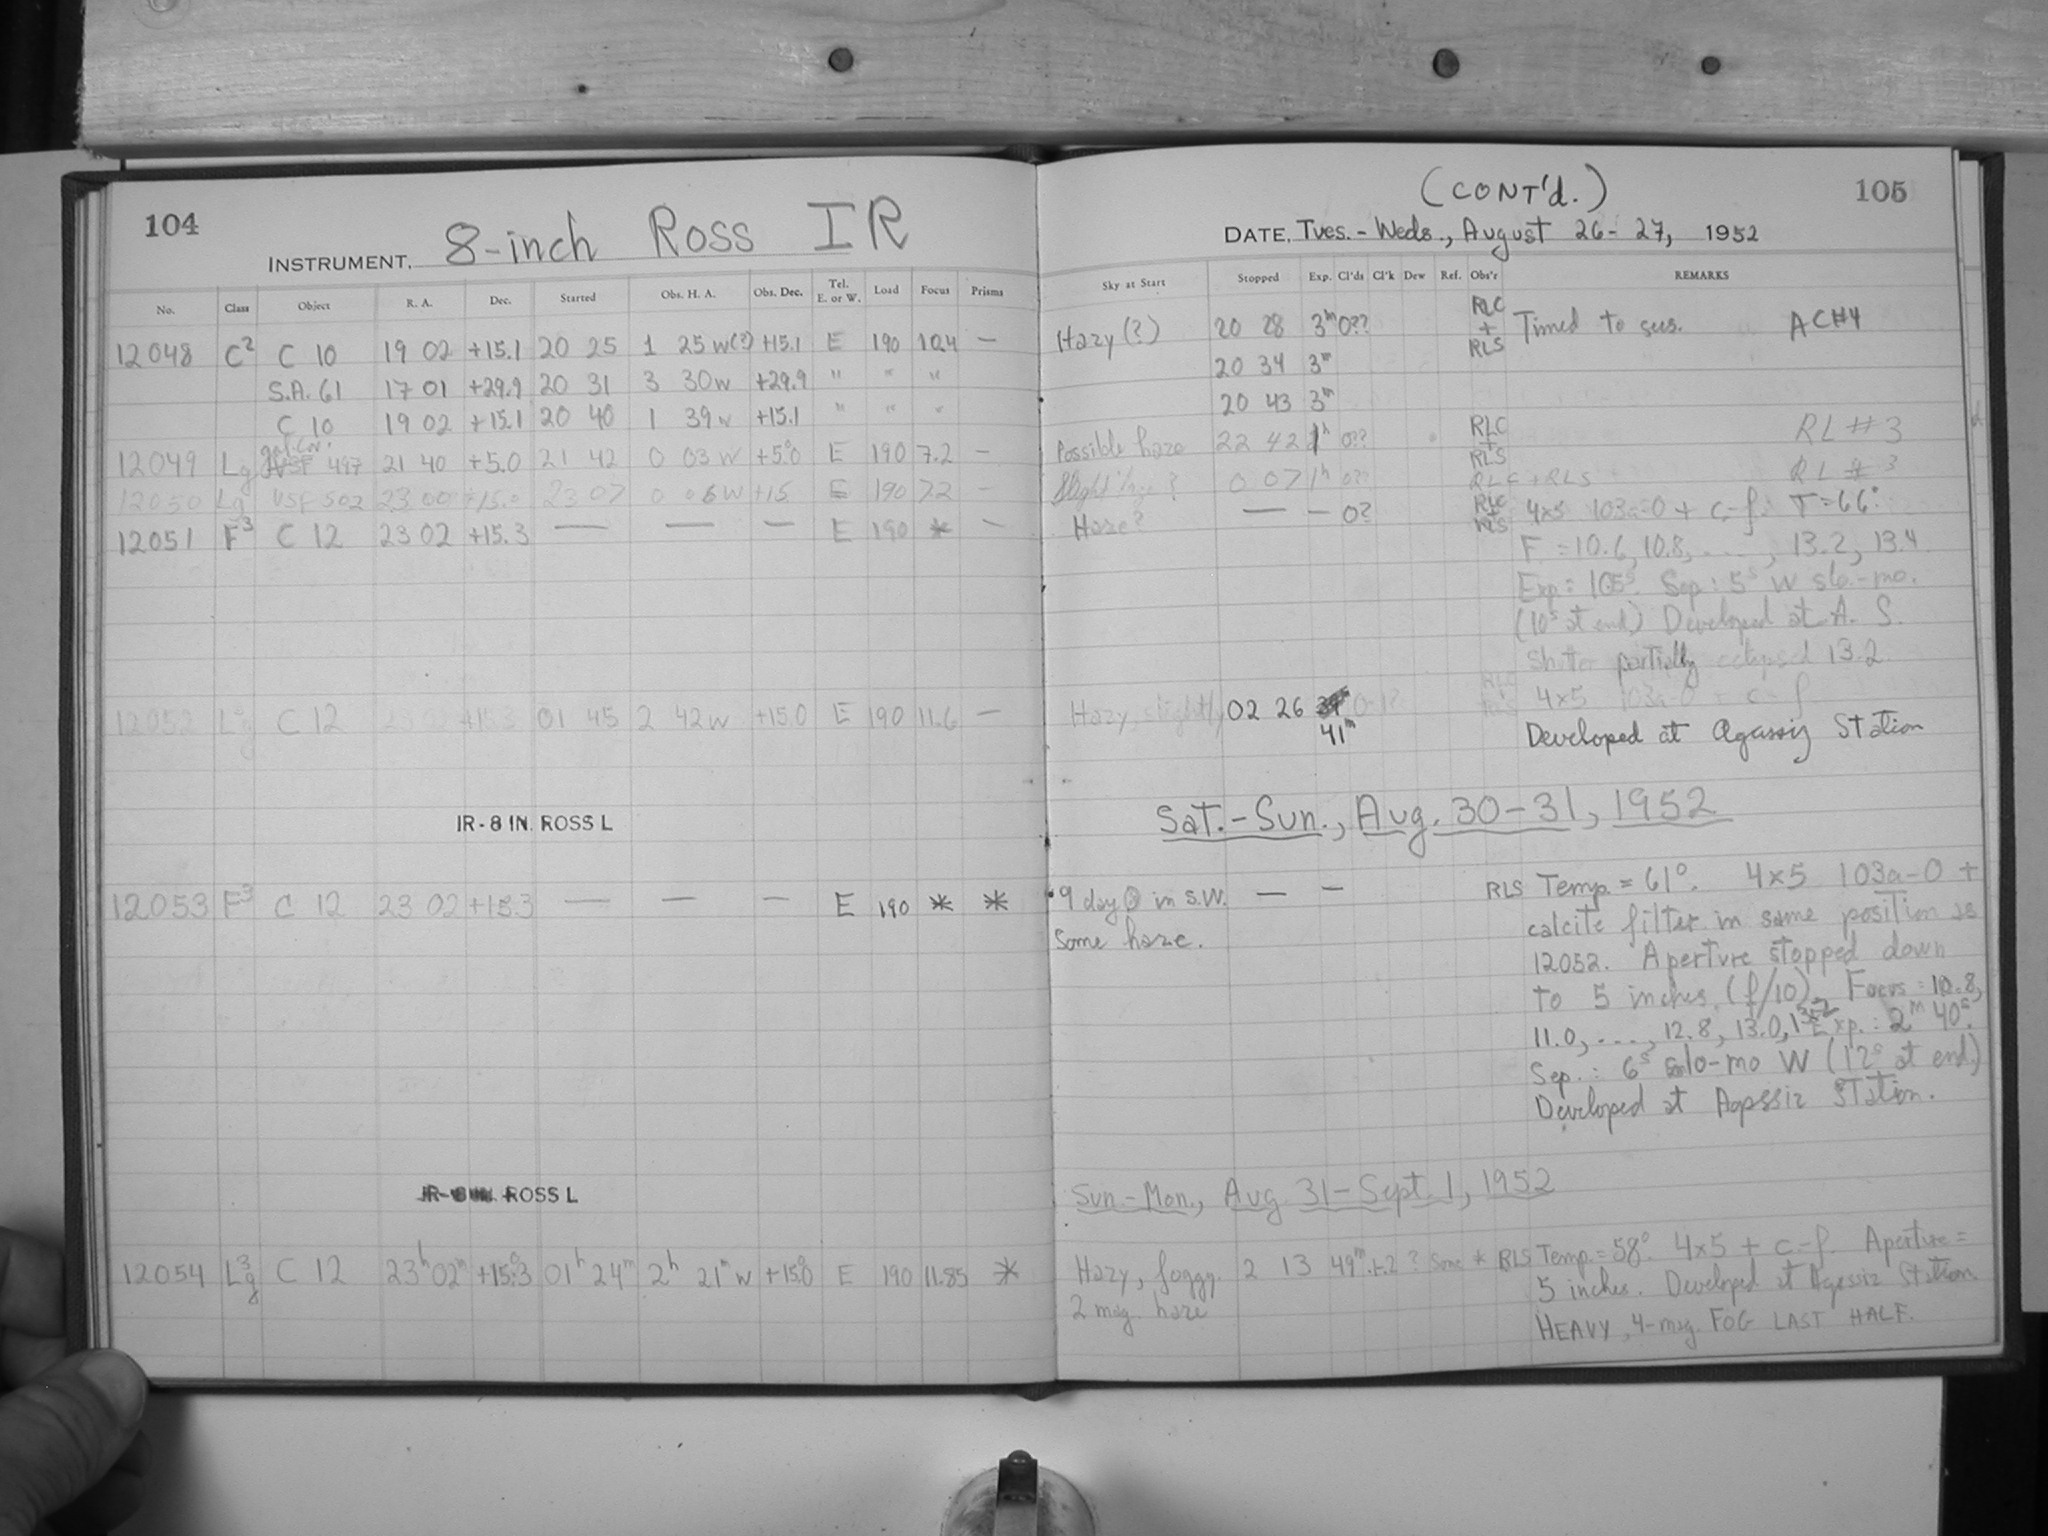 104
INSTRUMENT. 8-inch Ross IR
No. Class Object R. A. Dec. Started Obs. H. A. Obs. Dec. Tel. E. or W. Load Focus Prisms
12048 C2 C 10 19 02 +15.1 20 25 1 25 W(?) +15.1 E 190 10.4 —
S.A. 61 17 01 +29.9 20 31 3 30 W +29.9 " " "
C 10 19 02 +15.1 20 40 1 39 W +15.1 " " "
12049 Lg 497 21 40 +5.0 21 42 0 03 W +5.0 E 190 7.2 —
12050 Lg VSF 502 23 00 +15.0 23 07 0 06 W +15 E 190 7.2 —
12051 F3 C 12 23 02 +15.3 — — — E 190 * —
12052 Lg C 12 23 02 +15.3 01 45 2 42 W +15.0 E 190 11.6 —
IR-8 IN. ROSS L
12053 F3 C 12 23 02 +15.3 — — — E 190 * *
IR-8 IN. ROSS L
12054 L3g C 12 23h 02m +15.3 01h 24m 2h 21m W +15.0 E 190 11.85 *
(CONT'd.) 105
DATE. Tues. - Weds., August 26 - 27, 1952
Sky at Start Stopped Exp. Cl'ds Cl'k Dew Ref. Obs'r REMARKS
Hazy (?) 20 28 3m 0?? RLC + RLS Timed to sees. ACH4
20 34 3m
20 43 3m
Possible haze 22 42 1h 0?? RLC + RLS RL #3
Slight haze? 0 07 1h 0?? RLC + RLS RL #3
Haze? — — 0? RLC + RLS 4x5 103a-O + c-f. T = 66°
F = 10.6, 10.8, ...., 13.2, 13.4
Exp = 105s. Sep: 5s W slo-mo.
(10s at end) Developed at A. S.
Shutter partially eclipsed 13.2
Hazy, slightly 02 26 41m 0-1? 4x5 103a-O + c-f
Developed at Agassiz Station
Sat.-Sun., Aug. 30-31, 1952
9 day in S.W. — — RLS Temp. = 61°. 4x5 103a-O +
Some haze. calcite filter in same position as
12052. Aperture stopped down
to 5 inches. (f/10) Focus = 10.8,
11.0, ...., 12.8, 13.0, 13.2 Exp.: 2m 40s.
Sep.: 6s slo-mo W (12s at end)
Developed at Agassiz Station.
Sun.-Mon., Aug 31-Sept. 1, 1952
Hazy, foggy. 2 13 49m ? Some * RLS Temp. = 58°. 4x5 + c-f. Aperture =
2 mag. haze 5 inches. Developed at Agassiz Station.
HEAVY, 4-mag. FOG LAST HALF.